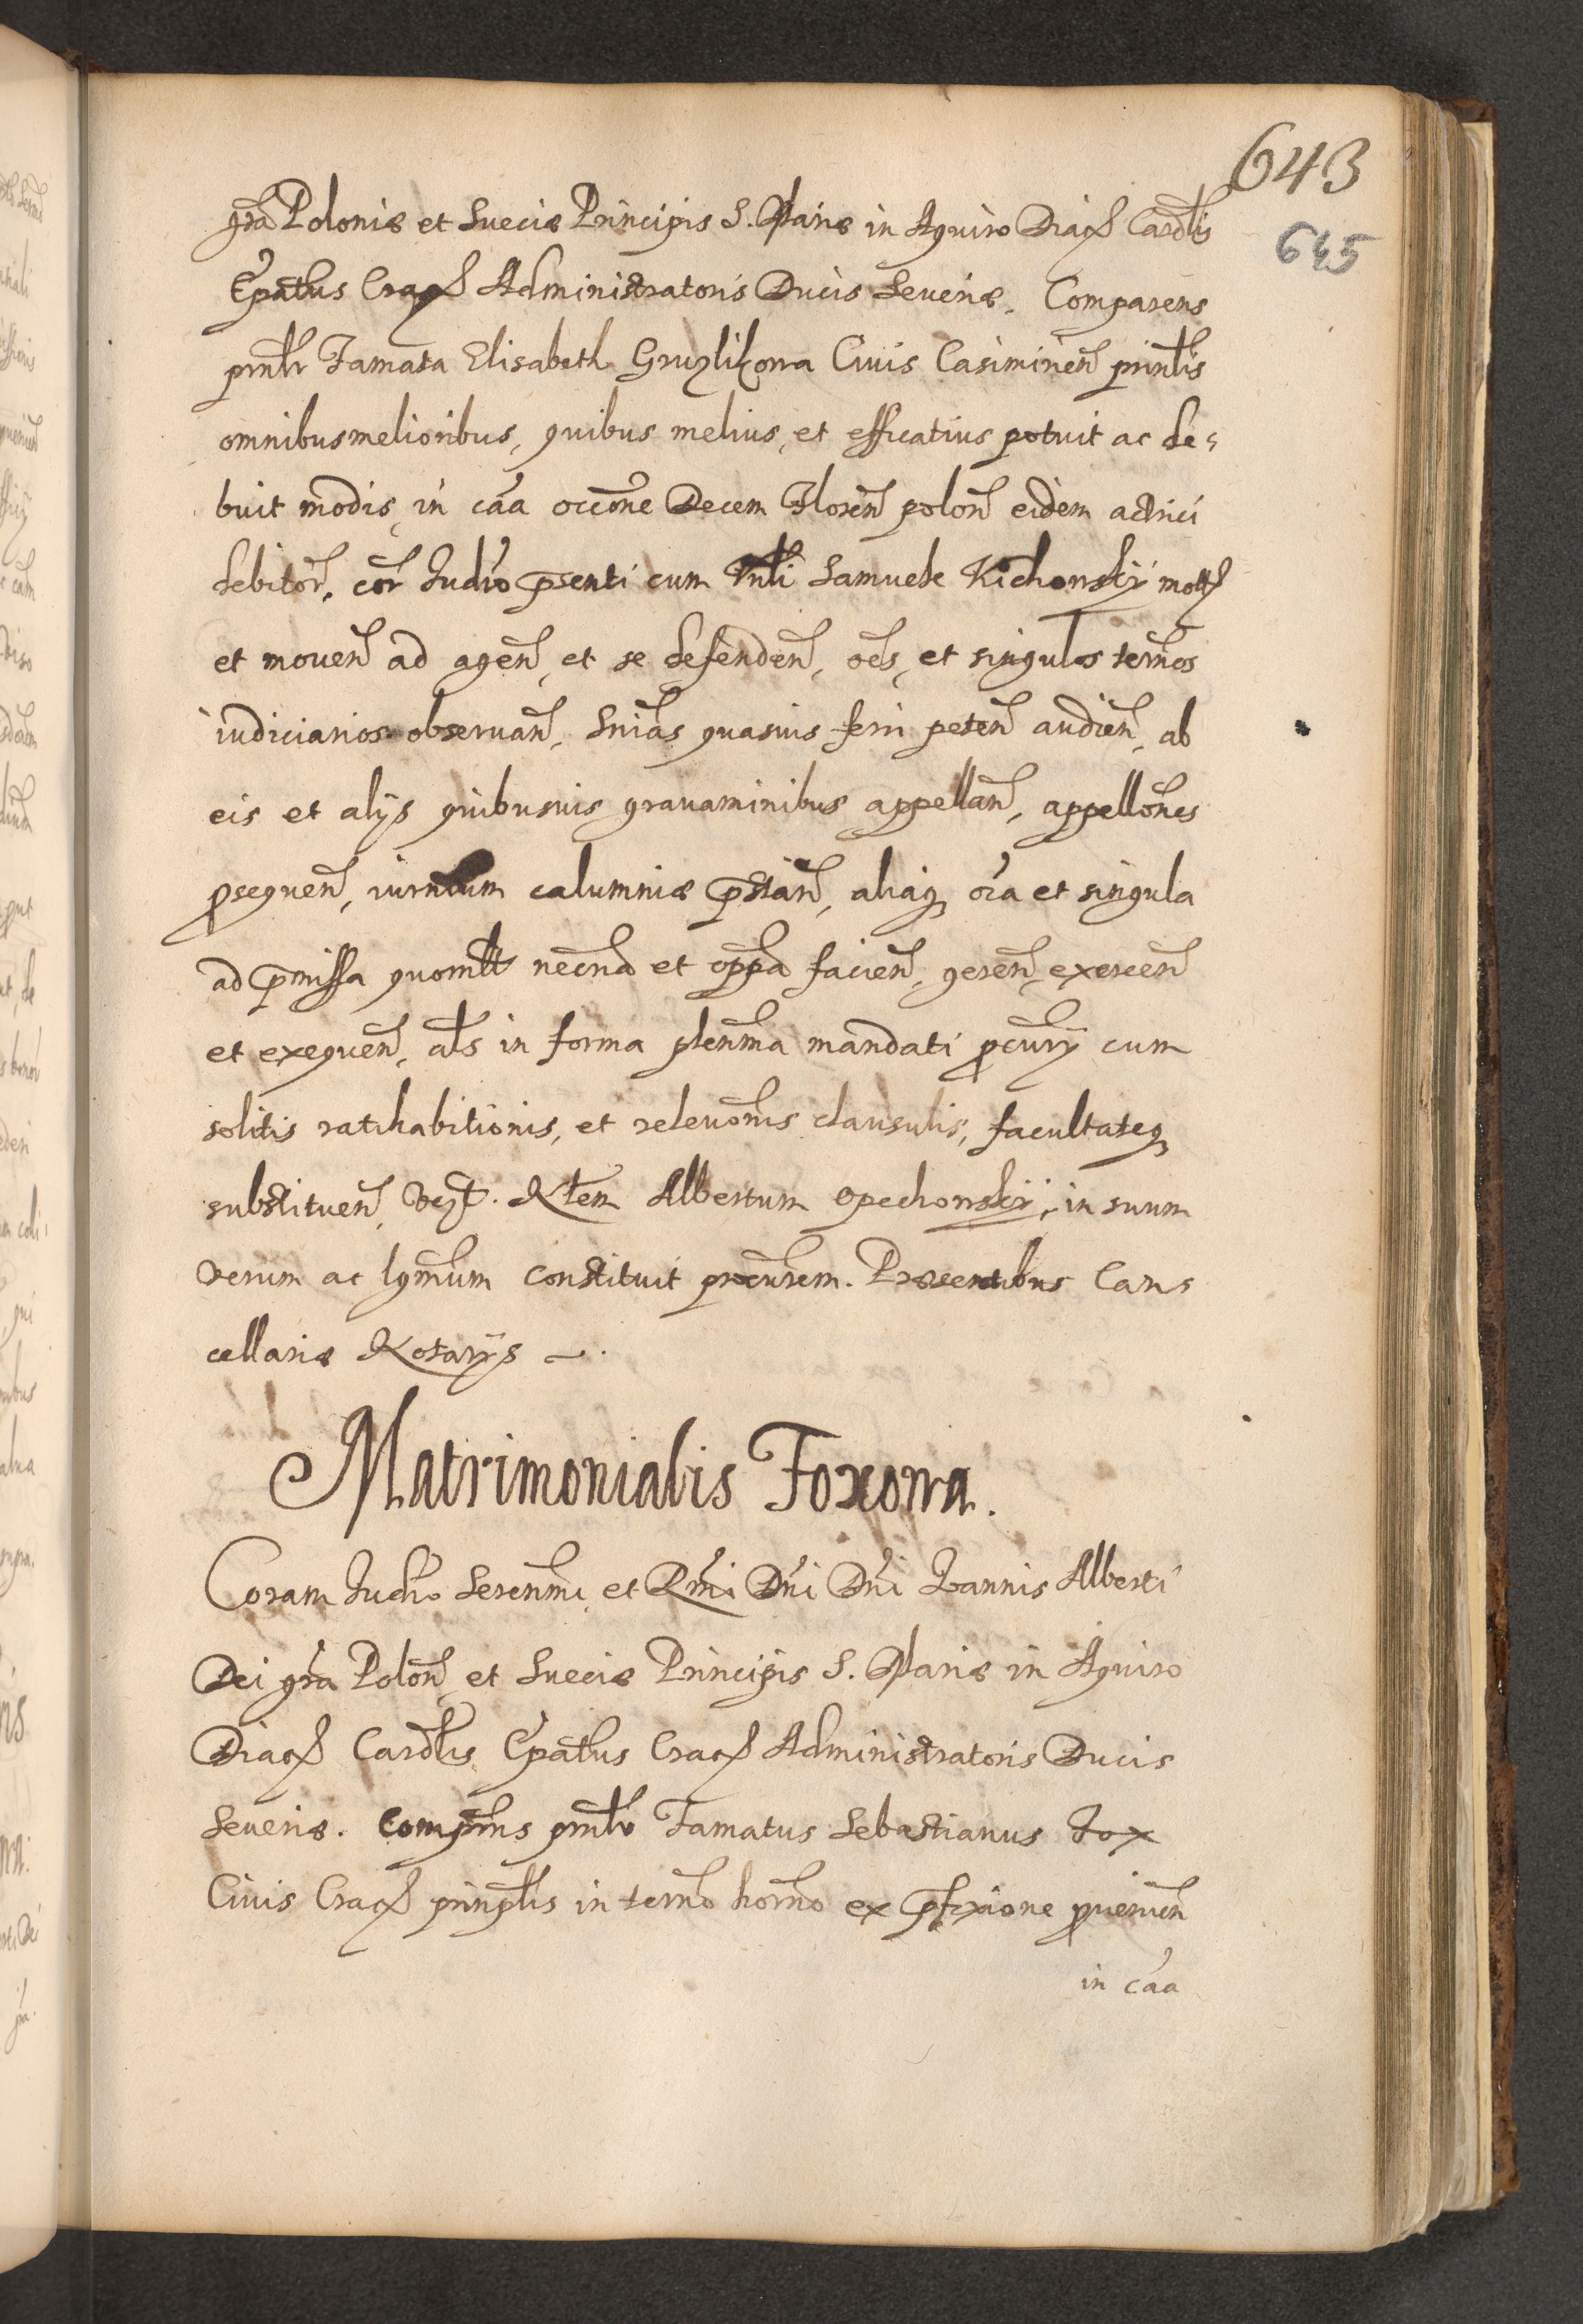 643
645
gra͂ Poloniæ et Sueciæ Principis S. Mariæ in Aquiro Diac͂ Cardlis
Ep͂atus Crac͂ Administratoris Ducis Seueriæ. Comparens
pn͂ltr Famata Elisabeth Gruzlikowa Ciuis Casimirien͂ prin͂lis
omnibus melioribus, quibus melius, et efficatius potuit ac de-
buit modis, in ca͂a occ͂one Decem Floren͂ polon͂ eidem actrici
debitor͂, cor͂ Iud͂io p͂senti cum Samuele Kichowskÿ mot͂
et mouen͂ ad agen͂, et se defenden͂, o͂es, et singulos term͂os
iudiciarios obseruan͂, Sn͂ias quasuis ferri peten͂ audien͂, ab
eis et alÿs quibusuis grauaminibus appellan͂, appell͂ones
p͂sequen͂, iurn͂tum calumniæ p͂stan͂, aliaq͂ o͂ia et singula
ad p͂missa quomlt nec͂na et opp͂a facien͂, geren͂, exercen͂
et exequen͂, al͂s in forma plen͂ma mandati p͂curÿ cum
solitis ratihabitionis, et releu͂onis clausulis, facultateq͂
substituen͂, Albertum Opechowskÿ, in suum
verum ac lg͂mum constituit procu͂rem. Præsentibus Can-
cellariæ Notarÿs –.
Matrimonialis Foxowa.
Coram Iud͂io Seren͂mi, et R͂mi D͂ni D͂ni Ioannis Alberti
Dei gr͂a Polon͂ et Sueciæ Principis S. Mariæ in Aquiro
Diac͂ Card͂lis, Ep͂atus Crac͂ Administratoris Ducis
Seueriæ. Comp͂rns pn͂ltr Famatus Sebastianus Fox
Ciuis Crac͂ prin͂plis in term͂o hor͂no ex p͂fixione p͂uenien͂
in ca͂a